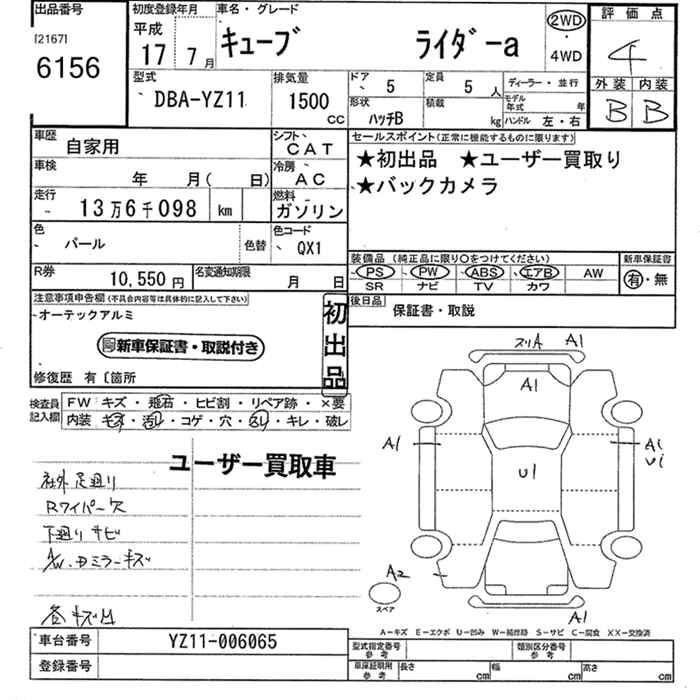 出品番号
[2167]
6156
初度登録年月
平成
17 7月
車名・グレード
キューブ ライダーa
2WD
・
4WD
評価点
4
外装 内装
B B
型式
DBA-YZ11
排気量
1500
CC
ドア 5
定員 5 人
ディーラー・並行
形状 ハッチB
積載 kg
モデル年式 年
ハンドル 左・右
車歴 自家用
シフト CAT
車検 年 月( 日)
冷房 AC
走行 13万6千098 km
燃料 ガソリン
色 パール 色替
色コード QX1
R券 10,550円
名変通知期限 月 日
セールスポイント(正常に機能するものに限ります)
★初出品 ★ユーザー買取り
★バックカメラ
装備品(純正品に限り○をつけてください)
新車保証書
PS PW ABS エアB AW
SR ナビ TV カワ
有・無
後日品 保証書・取説
注意事項申告欄(不具合内容等は具体的に記入して下さい)
オーテックアルミ
新車保証書・取説付き
初出品
修復歴 有〔箇所
検査員記入欄
FW キズ・飛石・ヒビ割・リペア跡・×要
内装 キズ・汚れ・コゲ・穴・欠レ・キレ・破レ
ユーザー買取車
社外足廻り
Rワイパー欠
下廻りサビ
AW.Dミラーキズ
各キズ凹
スリA A1
A1
A1
A1
U1
U1
A2
スペア
A1
A-キズ E-エクボ U-凹み W-補修跡 S-サビ C-腐食 XX-交換済
車台番号 YZ11-006065
登録番号
型式指定番号
参考
類別区分番号
参考
車庫証明用
参考
長さ cm
幅 cm
高さ cm